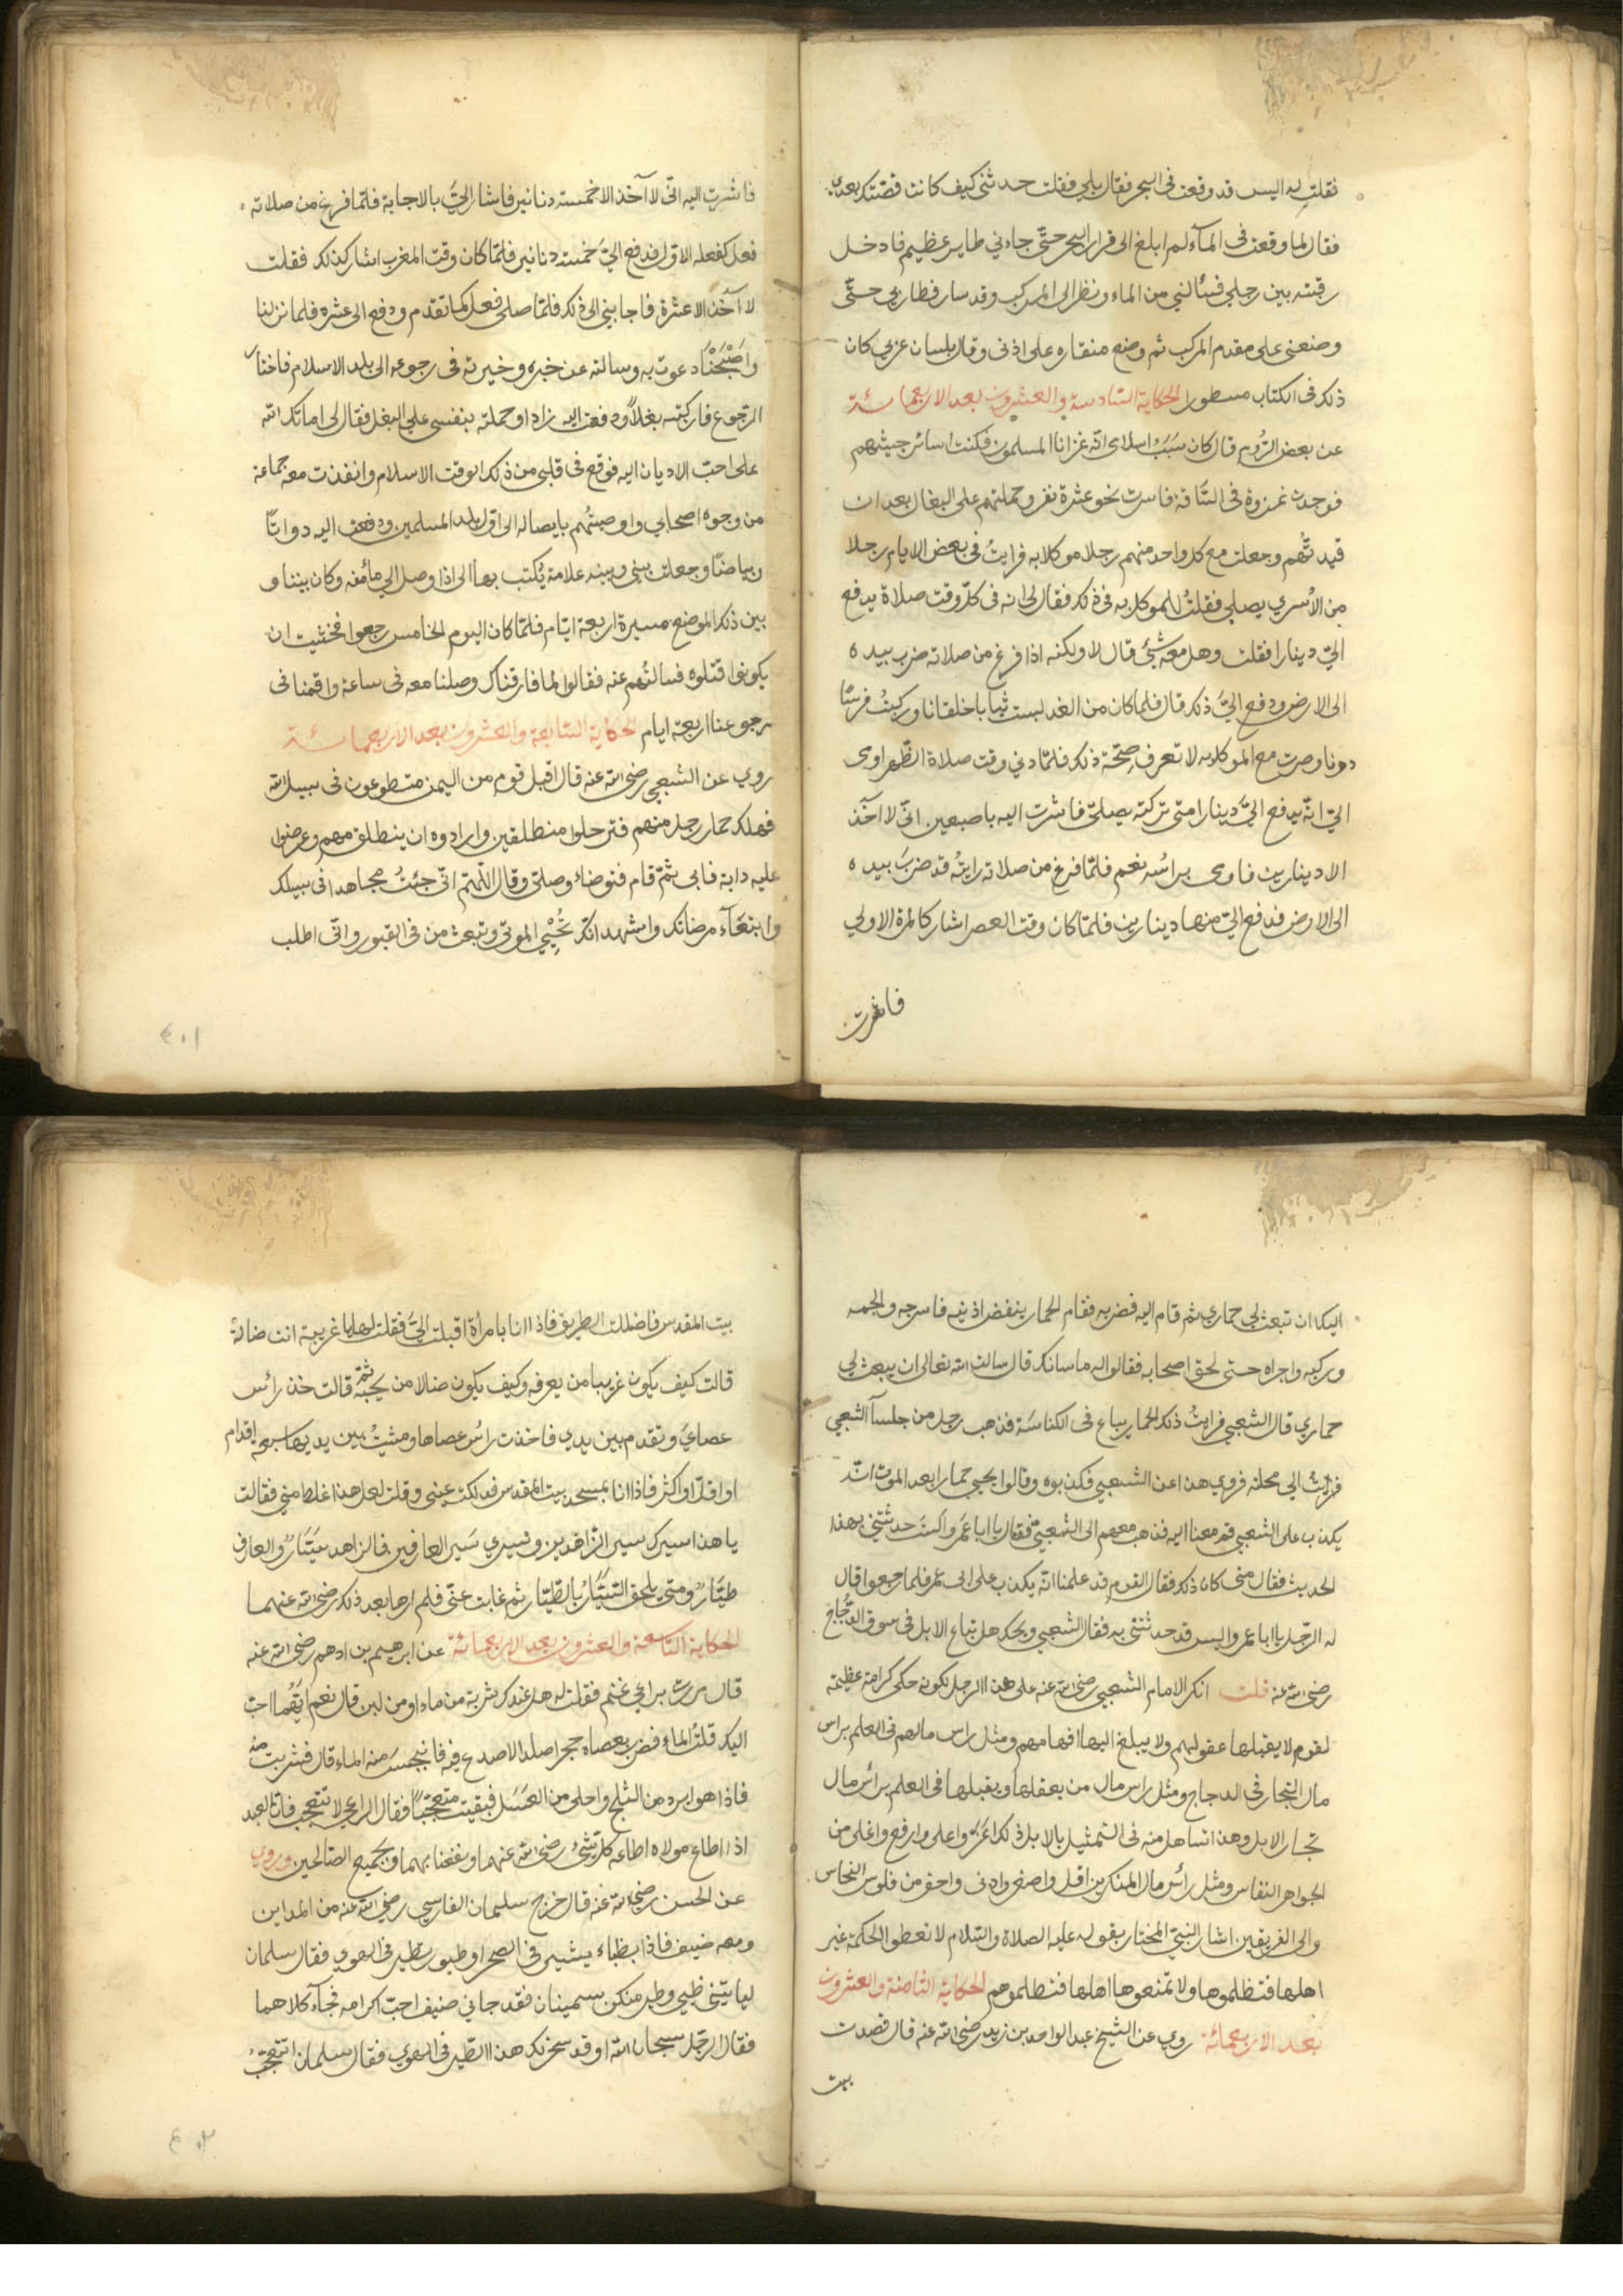 فقلت له اليس قد وقعت في البحر فقال بلي فقلت حدثني كيف كانت قضتك بعدي
فقال لما وقعت في المآء لم ابلغ الى قرار البحر حتّى جاءني طاير عظيم فادخل
رقبته بين رجلي فشالني من الماء ونظر الى المركب وقد سار فطار بي حتّى
وضعني على مقدم المركب ثم وضع منقاره على اذني وقال بلسان عربي كان
ذلك في الكتاب مسطورا الحكاية السّادسة والعشرون بعد الاربعمائة
عن بعض الرّوم قال كان سَبَبُ اسلامي انّه غزانا المسلمون فكنت اسائر جيشهم
فوجدت غرة في السّاقة فاسرت نحو عشرة نفر وحملتهم على البغال بعد ان
قيدتُهم وجعلت مع كل واحد منهم رجلا موكلا به فرايتُ في بعض الايام رجلا
من الأسري يصلي فقلتُ للموكل به في ذلك فقال لي انه في كلّ وقت صلاة يدفع
اليّ دينارا فقلت وهل معه شئ قال لا ولكنه اذا فرغ من صلاته ضرب بيده
الى الارض ودفع اليّ ذلك قال فلما كان من الغد لبست ثيابا خلقانا وركبتُ فرسًا
دونا وصرت مع الموكل به لا تعرف صِحّة ذلك فلمّا دني وقت صلاة الظهر اومى
اليّ انّه يدفع اليَّ دينارا متى تركته يصلّي فاشرت اليه باصبعين انّي لا آخذ
الا دينارين فاومى براسُه نعم فلمّا فرغ من صلاته رايتُه قد ضربَ بيده
الى الارض فدفع اليّ منها دينارين فلمّا كان وقت العصر اشار كالمرة الاولي
فاشرت
فاشرت اليه انّي لا آخذ الا خمسة دنانير فاشار اليَّ بالاجابة فلمّا فرغ من صلاته
فعل كفعله الاوّل فدفع اليَّ خمسة دنانير فلمّا كان وقت المغرب اشار كذلك فقلت
لا آخذ الا عشرة فاجابني الى ذلك فلمّا صلى فعل كما تقدم ودفع الى عشره فلما نزلنا
واصْبَحْنَا دعوت به وسالته عن خبره وخيرته في رجوعه الى بلد الاسلام فاختار
الرجوع فاركبته بغلاً ودفعت اليه زادا وحملته بنفسي على البغل فقال لي اماتك الله
على احبّ الاديان اليه فوقع في قلبي من ذلك الوقت الاسلام وانفذت معه جماعة
من وجوه اصحابي واوصيتُهم بايصاله الى اوّل بلد المسلمين ودفعت اليه دواتًا
وبياضًا وجعلت بيني وبينه علامة يُكتب بها الى اذا وصل الي مأمنه وكان بيننا و
بين ذلك الموضع مسيرة اربعة ايّام فلمّا كان اليوم الخامس رجعوا فخشيت ان
يكونوا قتلوه فسالتُهم عنه فقالوا لما فارقناك وصلنا معه في ساعة واقمنا في
رجوعنا اربعة ايام الحكاية السّابعة والعشرون بعد الاربعمائة
روي عن الشعبي رضى الله عنه قال اقبل قوم من اليمن متطوعون في سبيل الله
فهلك حمار رجل منهم فترحلوا منطلقين وارادوه ان ينطلق معهم وعرضوا
عليه دابة فابى ثمّ قام فتوضاء وصلّى وقال اللّهمّ انّي جئتُ مجاهدا في سبيلك
وابتغآء مرضاتك واشهد انّك تُحْيِي الموتى وتبعث من في القبور وانّي اطلب
٤٠١
اليك ان تبعث لي حماري ثم قام اليه فضربه فقام الحمار ينفض اذنيه فاسرجه والجمه
وركبه واجراه حتى لحق اصحابه فقالوا له ما شانك قال سالت الله تعالى ان يبعث لي
حماري قال الشعبي فرايتُ ذلك الحمار يباع في الكناسَة فذهب رجل من جلسآ الشعبي
فرات الي محلة فروي هذا عن الشعبي فكذبوه وقالوا يحيي حمارا بعد الموت انّه
يكذب على الشعبي قم معنا اليه فذهب معهم الى الشعبي فقال يا ابا عَمرو الستَ حدثتني بهذا
الحديث فقال متى كان ذلك فقال القوم قد علمنا انّه يكذب على ابي عمر فلما رجعوا قال
له الرّجل يا ابا عمر واليس قد حدثتني به فقال الشعبي ويحك هل تباع الابل في سوق الدّجاج
رضى الله عنه قلت انكر الامام الشعبي رضى الله عنه على هذا الرجل لكونه حكى كرامة عظيمة
لقوم لا يقبلها عقولهم ولا يبلغ اليها افهامهم ومثل راس مالهم في العلم براس
مال التجار في الدجاج ومثل راس مال من يعقلها ويقبلها في العلم برأس مال
تجار الابل وهذا تساهل منه في التمثيل بالابل ذلك اعَزّ واعلى وارفع واغلى من
الجواهر النفاس ومثل رأس مال المنكرين اقل واصغر وادنى واحقر من فلوس النحاس
والى الفريقين اشار النبيّ المختار بقوله عليه الصلاة والسّلام لا تعطوا الحكمة غير
اهلها فتظلموها ولا تمنعوها اهلها فتظلموهم الحكاية الثامنة والعشرون
بعد الاربعمائة روي عن الشيخ عبد الواحد بن زيد رضى الله عنه قال قصدت
بيت
بيت المقدس فاضللت الطريق فاذا انا بامرأة اقبلت اليّ فقلت لها يا غريبة انت ضالّة
قالت كيف يكون غريبا من يعرفه وكيف يكون ضالا من يحبّه ثم قالت خذ رأس
عصايَ وتقدم بين يدي فاخذت رأس عصاها ومشيتُ بين يديها سبعة اقدام
او اقلّ او اكثر فاذا انا بمسجد بيت المقدس فدلكت عيني وقلت لعل هذا غلط مني فقالت
يا هذا سيرك سير الزاهدين وسيري سَير العارفين فالزاهد سَيَّارٌ والعارف
طيّارٌ ومتى يلحق السَّيَّارُ بالطّيّار ثم غابت عنّي فلم ارها بعد ذلك رضى الله عنهما
الحكاية التّاسعة والعشرون بعد الاربعمائة عن ابرهيم بن ادهم رضى الله عنه
قال مررتُ براعي غنم فقلت له هل عندك شربة من ماء او من لبن قال نعم ايّهُما احبّ
اليك قلتُ الماء فضرب بعصاه حجرا صلدا لا صدع فيه فانبجسَ منه الماء قال فشربت منه
فاذا هو ابرد من الثلج واحلى من العَسَل فبقيت متعجّبًا فقال الراعي لا تتعجب فانّ العبد
اذا اطاع مولاه اطاعه كلّ شئ رضى الله عنهما ونفعنا بهما وبجميع الصّالحين وروي
عن الحسن رضى الله عنه قال خرج سليمان الفارسي رضى الله عنه من المداين
ومعه ضيف فاذا بظباء يسير في الصحرا وطيور تطير في الهوي فقال سلمان
لياتيني ظبي وطير منكن سمينان فقد جاني ضيف احبّ اكرامه فجآء كلاهما
فقال الرّجل سبحان الله او قد سخر لك هذا الطّير في الهوي فقال سلمان اتتعجّبُ
٤٠٢